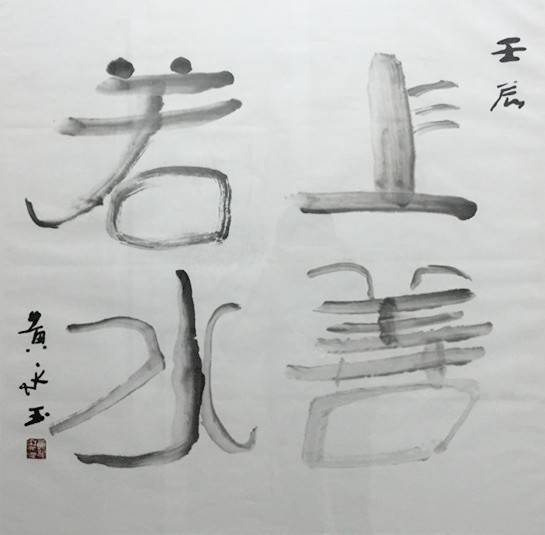 壬辰
上善
若水
黄永玉